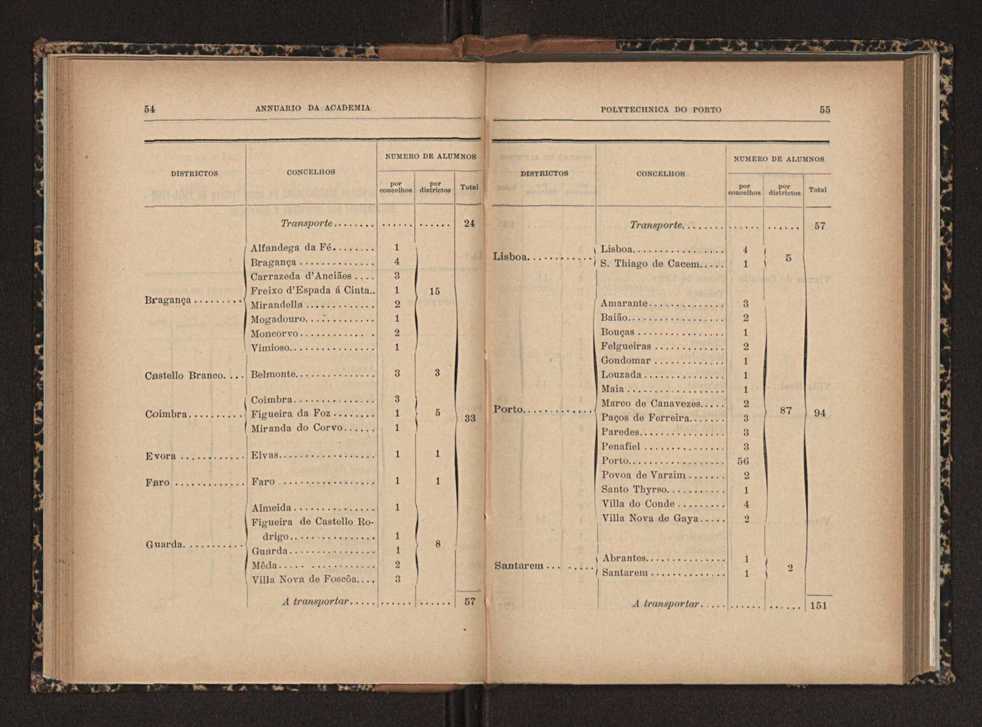 54 ANNUARIO DA ACADEMIA
DISTRICTOS CONCELHOS NUMERO DE ALUMNOS
por concelhos por districtos Total
Transporte........ ...... ...... 24
Bragança......... Alfandega da Fé........ 1 15 33
Bragança............. 4
Carrazeda d'Anciães.... 3
Freixo d'Espada á Cinta.. 1
Mirandella............ 2
Mogadouro............ 1
Moncorvo............. 2
Vimioso............... 1
Castello Branco.... Belmonte.............. 3 3
Coimbra.......... Coimbra.............. 3 5
Figueira da Foz........ 1
Miranda do Corvo...... 1
Evora........... Elvas................. 1 1
Faro............ Faro................. 1 1
Guarda........... Almeida.............. 1 8
Figueira de Castello Ro-
drigo.............. 1
Guarda............... 1
Mêda................. 2
Villa Nova de Foscôa.... 3
A transportar..... ...... ...... 57
POLYTECHNICA DO PORTO 55
DISTRICTOS CONCELHOS NUMERO DE ALUMNOS
por concelhos por districtos Total
Transporte........ ...... ...... 57
Lisboa........... Lisboa............... 4 5 94
S. Thiago de Cacem..... 1
Porto............ Amarante............. 3 87
Baião................ 2
Bouças............... 1
Felgueiras............ 2
Gondomar............ 1
Louzada.............. 1
Maia................. 1
Marco de Canavezes..... 2
Paços de Ferreira....... 3
Paredes............... 3
Penafiel.............. 3
Porto................. 56
Povoa de Varzim....... 2
Santo Thyrso.......... 1
Villa do Conde........ 4
Villa Nova de Gaya..... 2
Santarem......... Abrantes............. 1 2
Santarem............. 1
A transportar..... ...... ...... 151